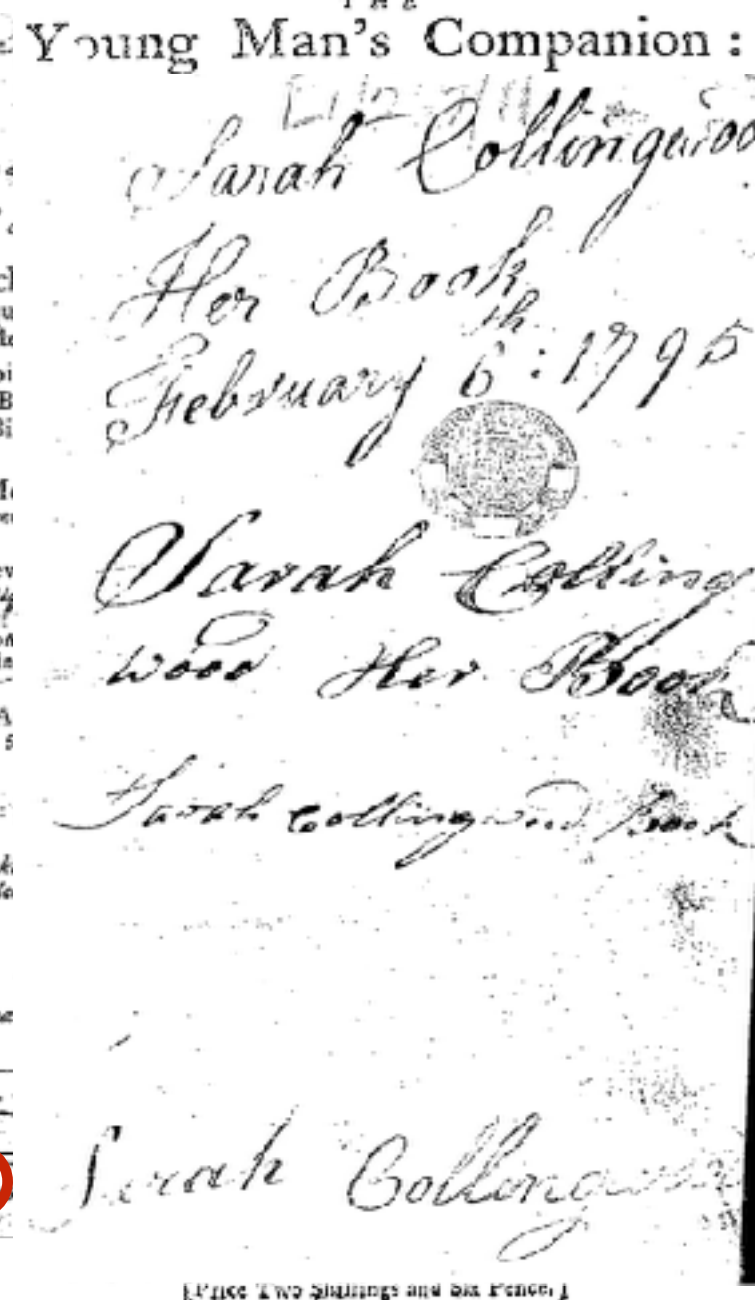 THE
Young Man's Companion:
Sarah Collingwoo
Her Book
February 6th: 1795
Sarah Colling
wood Her Book
Sarah Collingwood Book
Sarah Collingwood
[Price Two Shillings and Six Pence.]